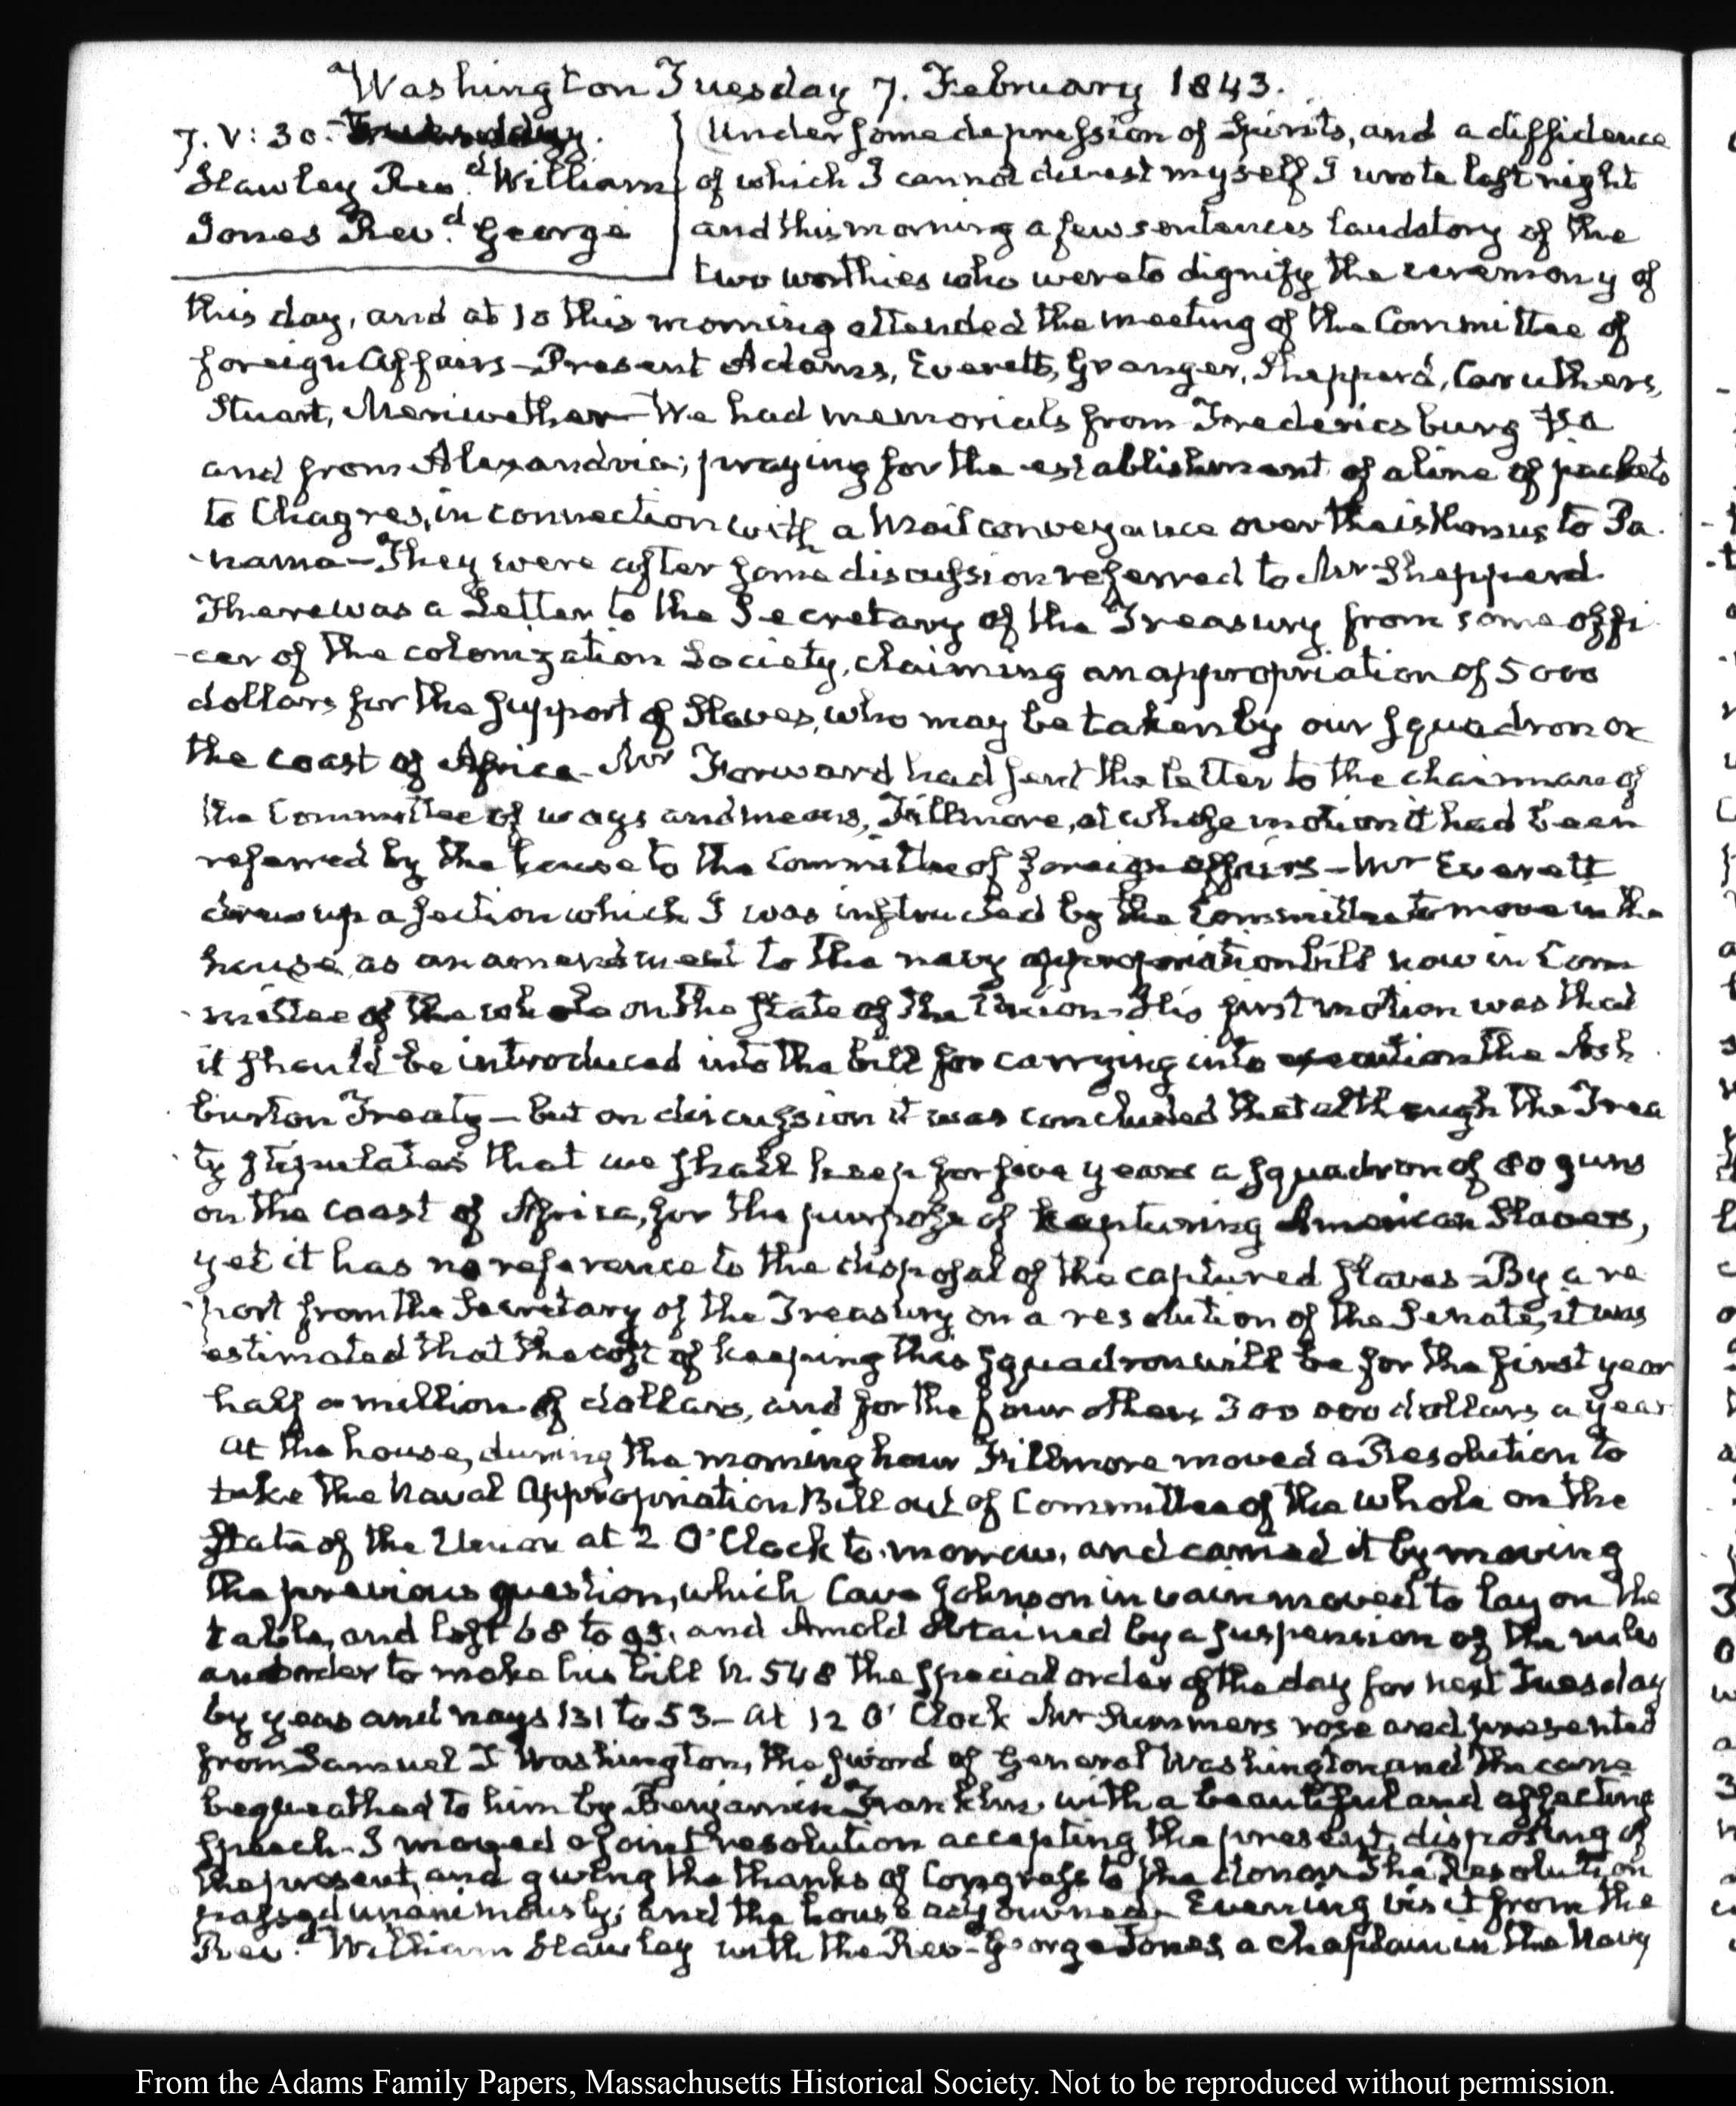 Washington Tuesday 7. February 1843.
7. V: 30. Tuesday.
Hawley Revd. William
Jones Revd. George
Under some depression of Spirits, and a diffidence
of which I cannot divest myself I wrote last night
and this morning a few sentences laudatory of the
two worthies who were to dignify the ceremony of
this day, and at 10 this morning attended the meeting of the Committee of
foreign Affairs—Present Adams, Everett, Granger, Shepperd, Caruthers,
Stuart, Meriwether—We had memorials from Fredericsburg Va
and from Alexandria; praying for the establishment of a line of packets
to Chagres, in connection with a Mail conveyance over the isthmus to Pa-
-nama—They were after some discussion referred to Mr Shepperd.
There was a Letter to the Secretary of the Treasury from some offi
-cer of the colonization Society, claiming an appropriation of 5000
dollars for the support of Slaves, who may be taken by our squadron on
the coast of Africa—Mr Forward had sent the letter to the chairman of
the Committee of ways and means, Fillmore, at whose motion it had been
referred by the house to the Committee of foreign affairs—Mr Everett
drew up a section which I was instructed by the Committee to move in the
house, as an amendment to the navy appropriation bill now in Com
-mittee of the whole on the state of the Union—His first motion was that
it should be introduced into the bill for carrying into execution the Ash
burton Treaty—but on discussion it was concluded that although the Trea
ty stipulates that we shall keep for five years a squadron of 80 guns
on the coast of Africa, for the purpose of capturing American Slavers,
yet it has no reference to the disposal of the captured slaves—By a re
-port from the Secretary of the Treasury on a resolution of the Senate, it was
estimated that the cost of keeping this squadron will be for the first year
half a million of dollars, and for the four others 300 000 dollars a year
At the house, during the morning hour Fillmore moved a Resolution to
take the Naval Appropriation Bill out of Committee of the whole on the
state of the Union at 2 O'Clock to-morrow, and carried it by moving
the previous question, which Cave Johnson in vain moved to lay on the
table, and lost 68 to 95. and Arnold obtained by a suspension of the rules
an order to make his bill N. 548 the special order of the day for next Tuesday
by yeas and nays 131 to 53—At 12 O'Clock Mr Summers rose and presented
from Samuel T Washington, the sword of General Washington and the cane
bequeathed to him by Benjamin Franklin, with a beautiful and affecting
speech—I moved a joint resolution accepting the present, disposing of
the present, and giving the thanks of Congress to the donor. The Resolution
passed unanimously; and the house adjourned. Evening visit from the
Revd. William Hawley with the Rev. George Jones a chaplain in the Navy
From the Adams Family Papers, Massachusetts Historical Society. Not to be reproduced without permission.